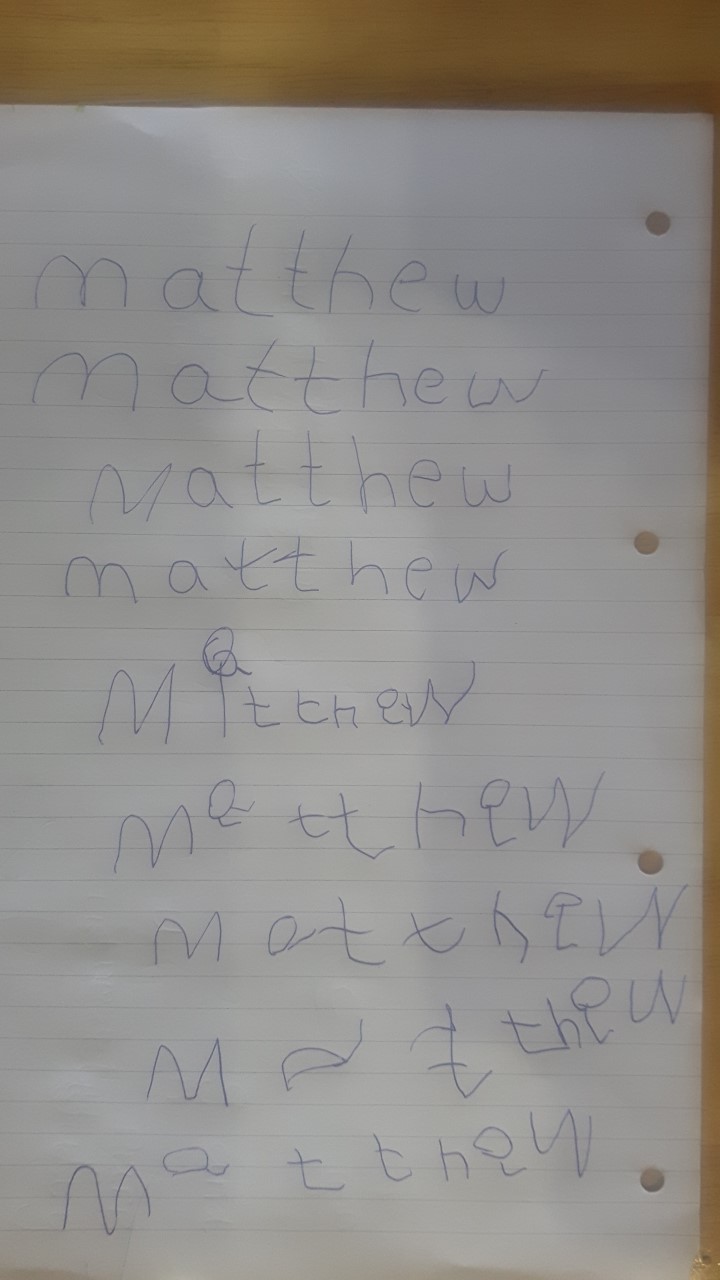 matthew
matthew
Matthew
matthew
Matthew
Matthew
Matthew
Matthew
Matthew